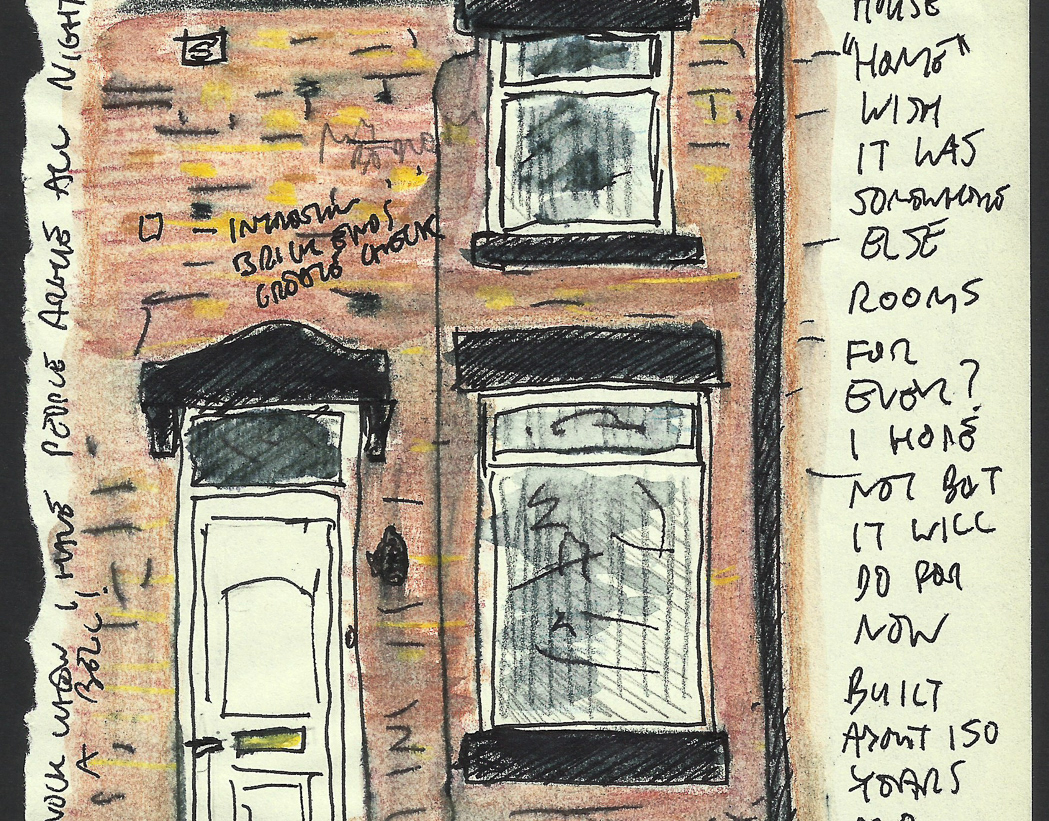 HOUSE
"HOME"
WISH
IT WAS
SOMEWHERE
ELSE
ROOMS
FOR
EVER?
I HOPE
NOT BUT
IT WILL
DO FOR
NOW
BUILT
ABOUT 150
YEARS
BRICK ENDS
CHECK
PEOPLE ARGUE ALL NIGHT
KNOCK WHEN I HAVE
A BELL!
S